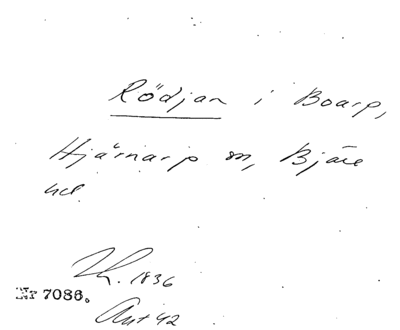 Rödjan i Boarp,
Hjärnarp sn, Bjäre
hd.
1836
Nr 7086.
Ant 42